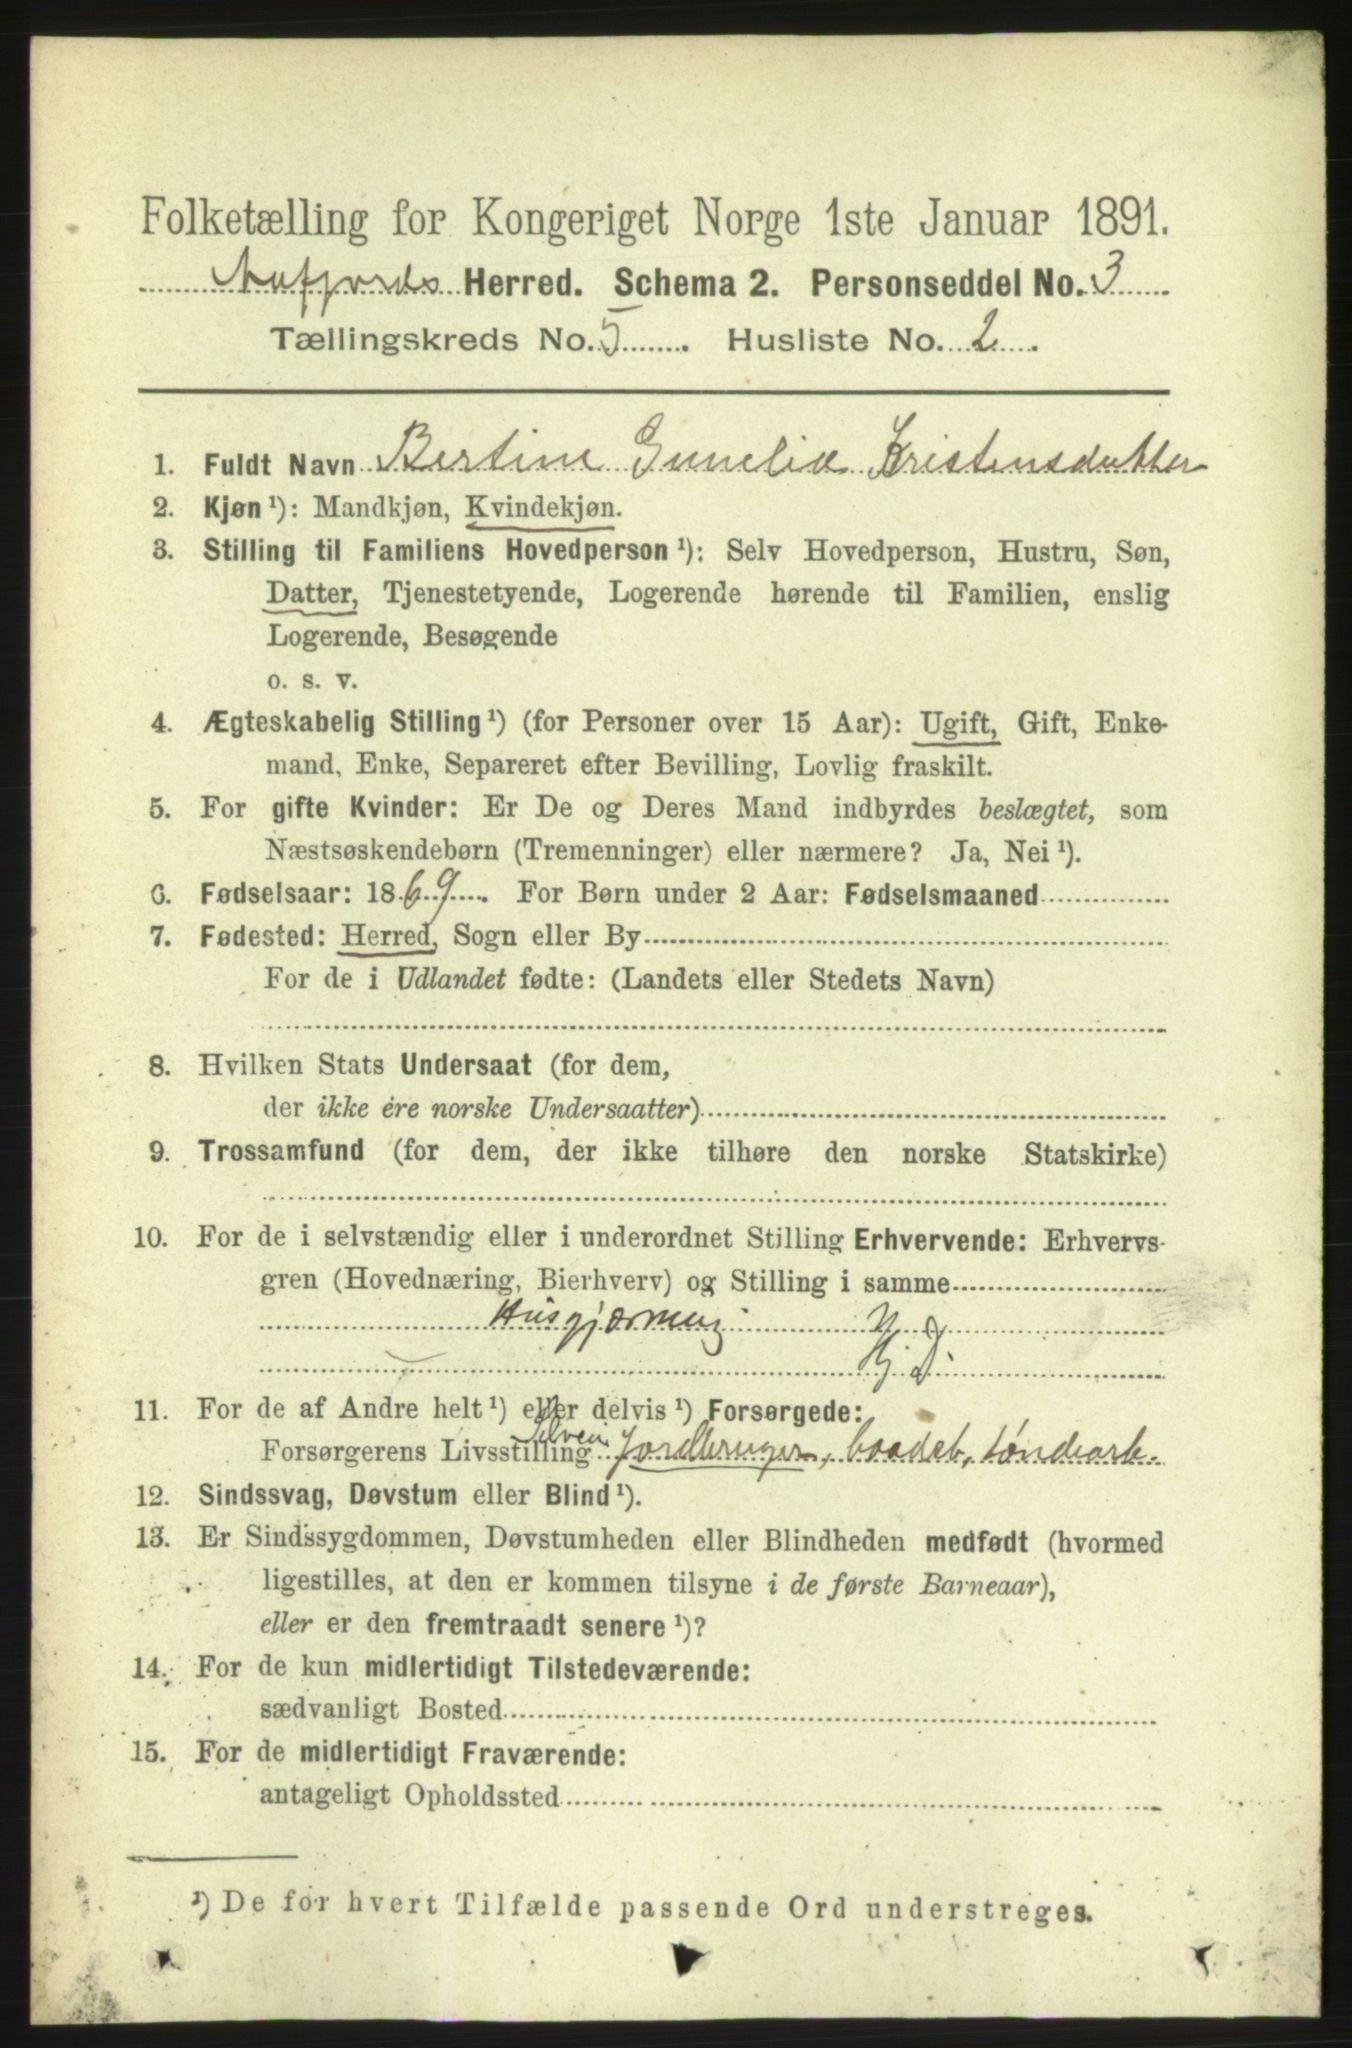 Folketælling for Kongeriget Norge 1ste Januar 1891.
Aafjords Herred. Schema 2. Personseddel No. 3
Tællingskreds No. 5. Husliste No. 2.
1. Fuldt Navn Bertine Gunelia Kristensdatter
2. Kjøn ¹): Mandkjøn, Kvindekjøn.
3. Stilling til Familiens Hovedperson ¹): Selv Hovedperson, Hustru, Søn,
Datter, Tjenestetyende, Logerende hørende til Familien, enslig
Logerende, Besøgende
o. s. v.
4. Ægteskabelig Stilling ¹) (for Personer over 15 Aar): Ugift, Gift, Enke-
mand, Enke, Separeret efter Bevilling, Lovlig fraskilt.
5. For gifte Kvinder: Er De og Deres Mand indbyrdes beslægtet, som
Næstsøskendebørn (Tremenninger) eller nærmere? Ja, Nei ¹).
6. Fødselsaar: 1869. For Børn under 2 Aar: Fødselsmaaned
7. Fødested: Herred, Sogn eller By
For de i Udlandet fødte: (Landets eller Stedets Navn)
8. Hvilken Stats Undersaat (for dem,
der ikke ere norske Undersaatter)
9. Trossamfund (for dem, der ikke tilhøre den norske Statskirke)
10. For de i selvstændig eller i underordnet Stilling Erhvervende: Erhvervs-
gren (Hovednæring, Bierhverv) og Stilling i samme
Husgjærning
Hj. D.
11. For de af Andre helt ¹) eller delvis ¹) Forsørgede:
Forsørgerens Livsstilling Selvei Jordbruger, baadeb, tøndearb.
12. Sindssvag, Døvstum eller Blind ¹).
13. Er Sindssygdommen, Døvstumheden eller Blindheden medfødt (hvormed
ligestilles, at den er kommen tilsyne i de første Barneaar),
eller er den fremtraadt senere ¹)?
14. For de kun midlertidigt Tilstedeværende:
sædvanligt Bosted
15. For de midlertidigt Fraværende:
antageligt Opholdssted
¹) De for hvert Tilfælde passende Ord understreges.